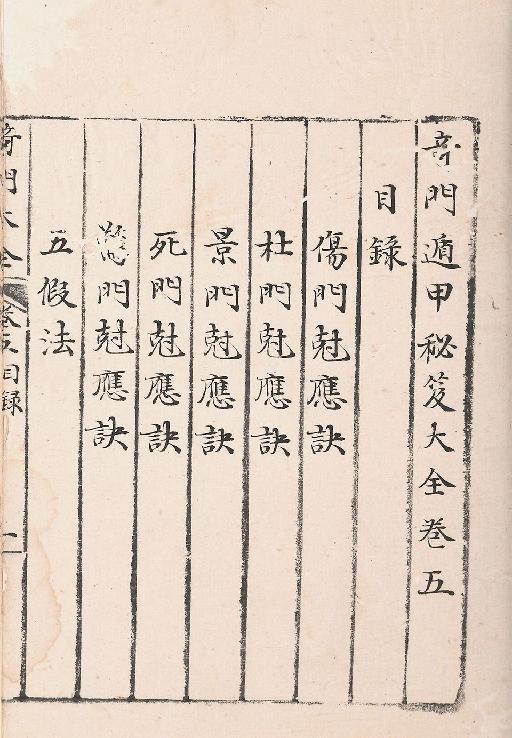 奇門遁甲秘笈大全卷五
目錄
傷門尅應訣
杜門尅應訣
景門尅應訣
死門尅應訣
驚門尅應訣
五假法
奇門大全 卷五目錄 一